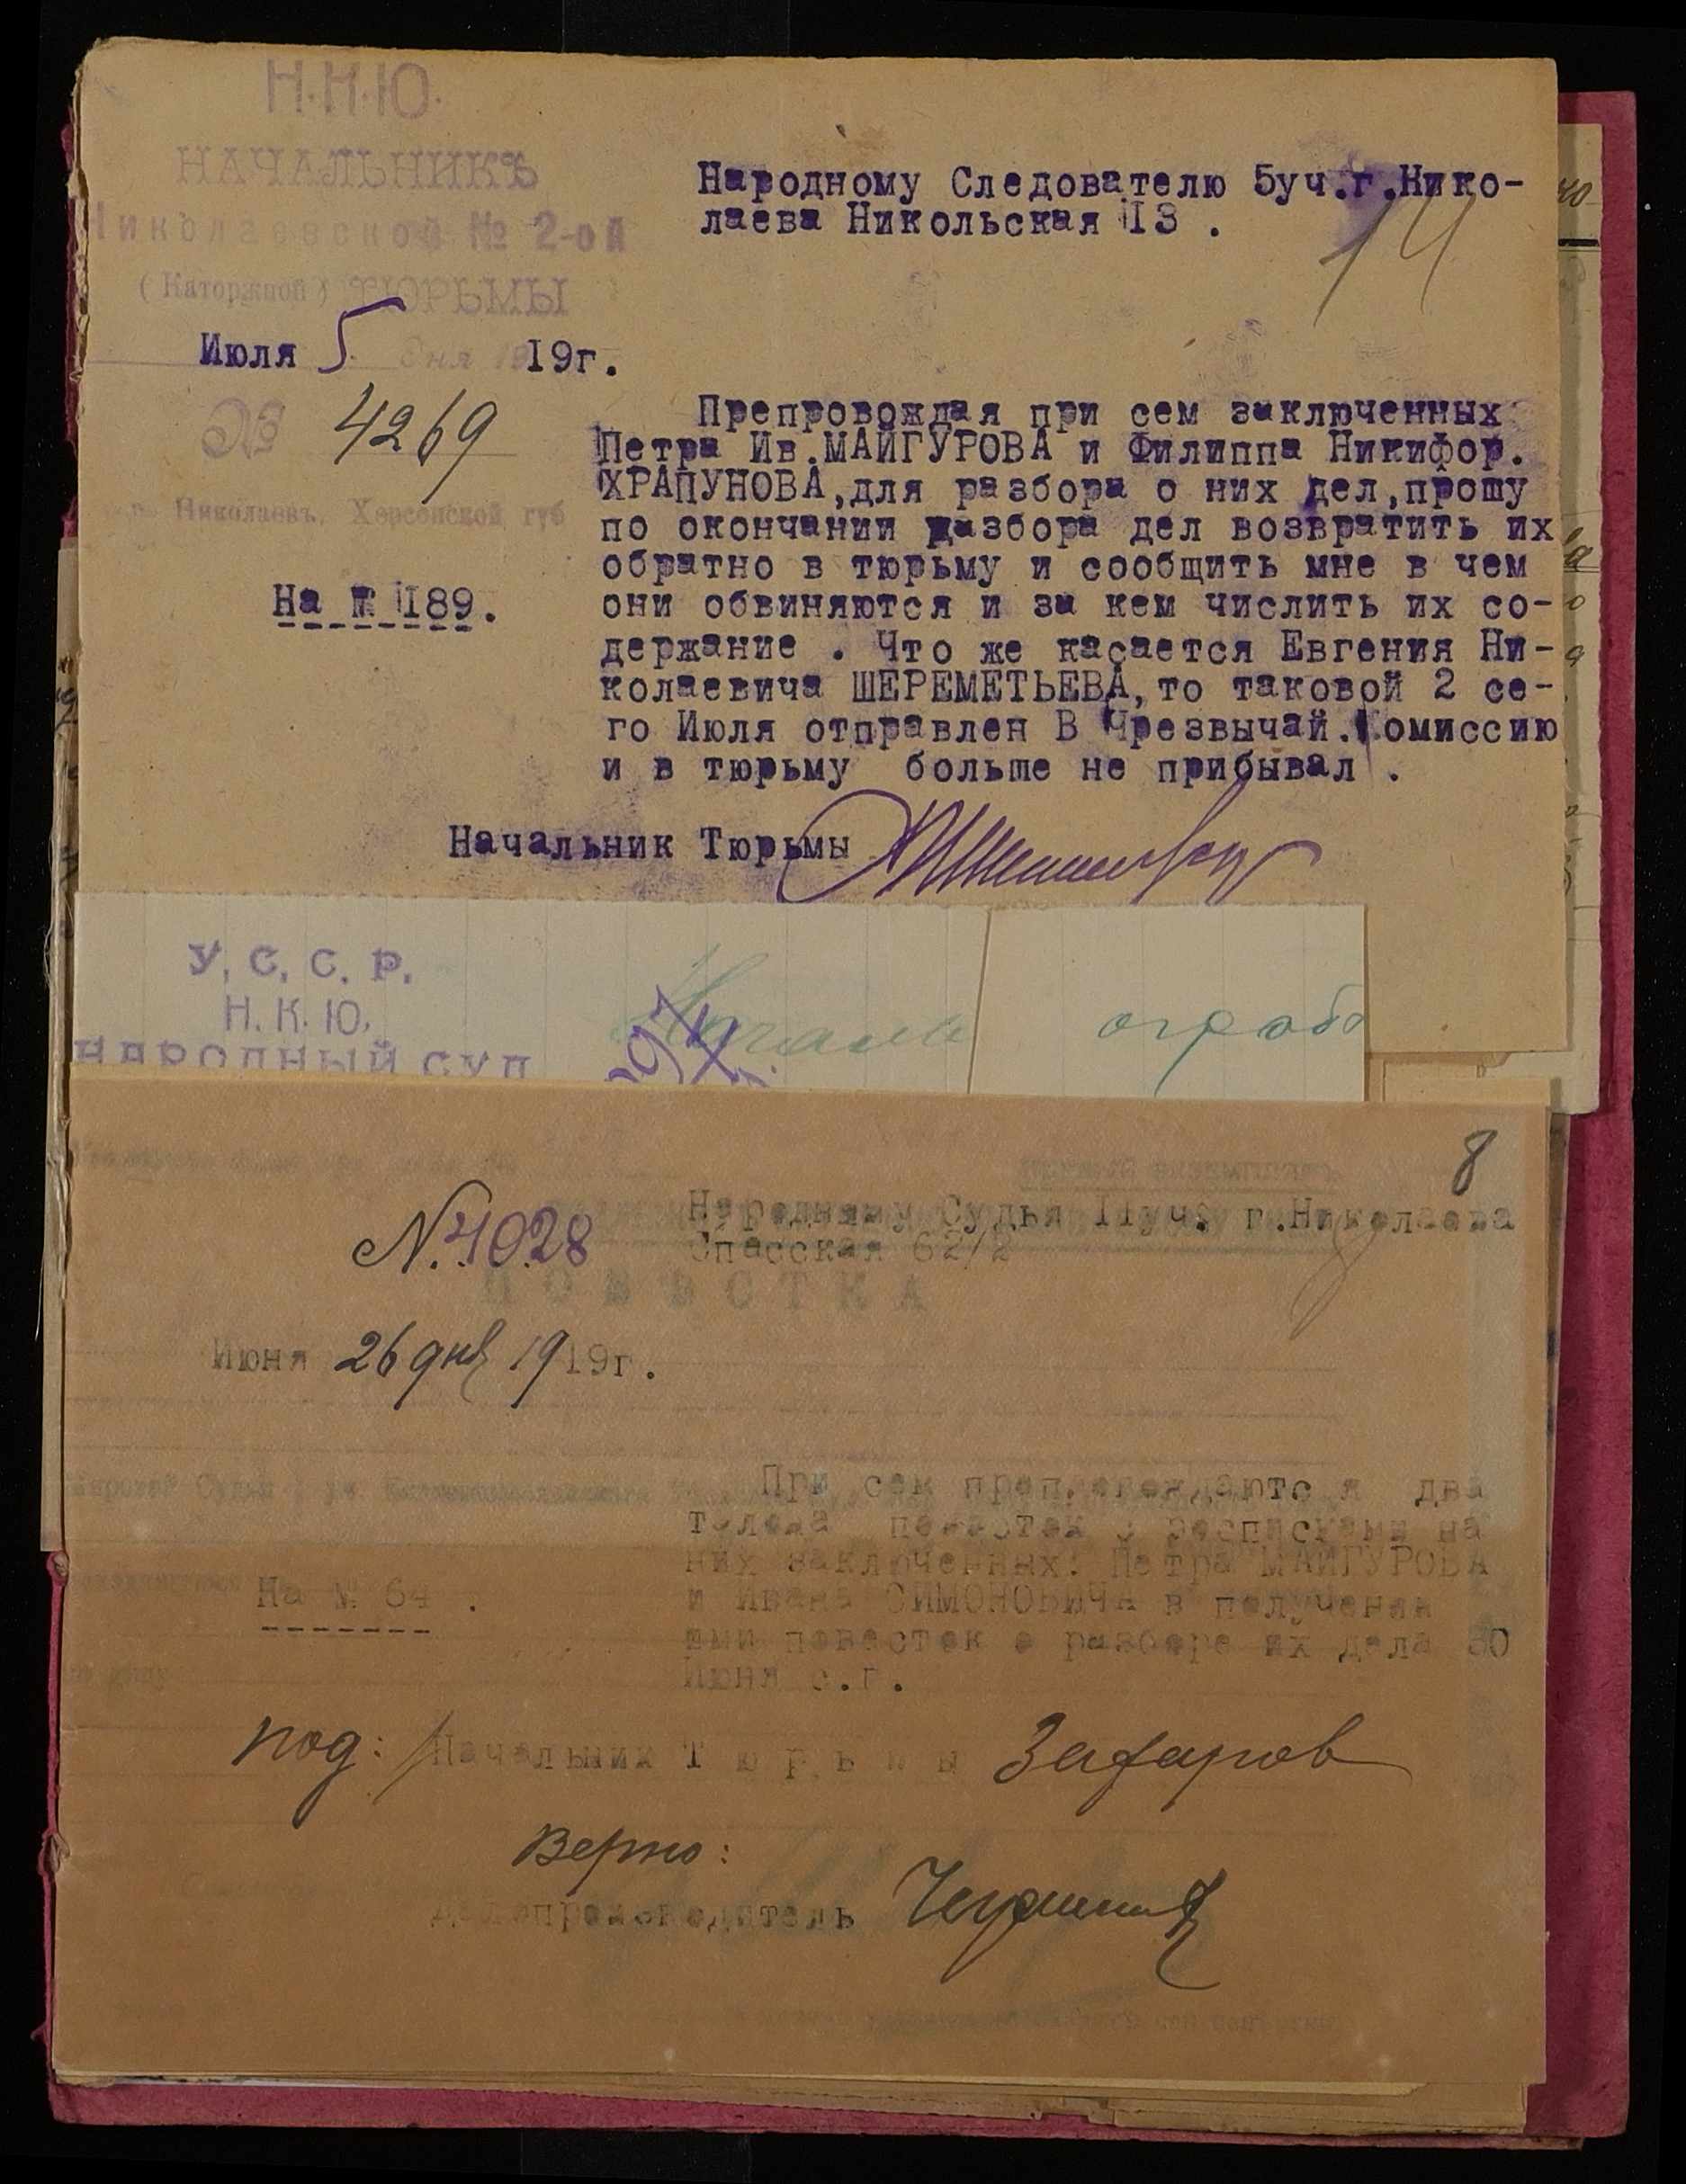 Н.К.Ю.
НАЧАЛЬНИКЪ
Николаевской № 2-ой
( Каторжной ) ТЮРЬМЫ
Июля 5 дня 19 19г.
№ 4269
г. Николаевъ, Херсонской губ
На № 189.
Народному Следователю 5уч.г.Нико-
лаева Никольская 13 .
14
Препровождая при сем заключенных
Петра Ив.МАЙГУРОВА и Филиппа Никифор.
ХРАПУНОВА,для разбора о них дел,прошу
по окончании разбора дел возвратить их
обратно в тюрьму и сообщить мне в чем
они обвиняются и за кем числить их со-
держание . Что же касается Евгения Ни-
колаевича ШЕРЕМЕТЬЕВА,то таковой 2 се-
го Июля отправлен В Чрезвычай.Комиссию
и в тюрьму больше не прибывал .
Начальник Тюрьмы
У. С. С. Р.
Н. К. Ю.
НАРОДНЫЙ СУД
8
N. 4028
Народному Судья 11уч. г.Николаева
Спасская 62/2
ПОВѢСТКА
Июня 26 дня 1919г.
При сем препровождаются два
талона повесток с росписками на
них заключенных: Петра МАЙГУРОВА
и Ивана СИМОНОВИЧА в получении
ими повесток о разборе их дела 30
Июня с.г.
На № 64 .
под: Начальник Тюрьмы Захаров
Верно:
Делопроизводитель